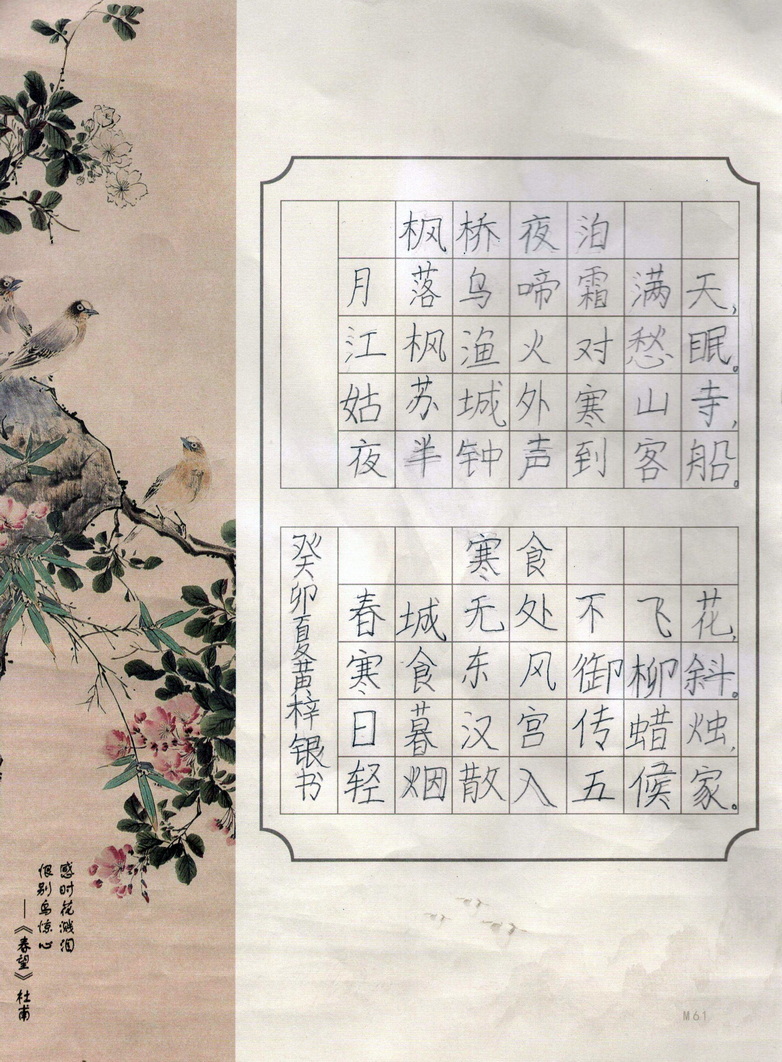 枫桥夜泊
月落乌啼霜满天,
江枫渔火对愁眠。
姑苏城外寒山寺,
夜半钟声到客船。
寒食
春城无处不飞花,
寒食东风御柳斜。
日暮汉宫传蜡烛,
轻烟散入五候家。
癸卯夏黄梓银书
感时花溅泪
恨别鸟惊心
——《春望》杜甫
M61